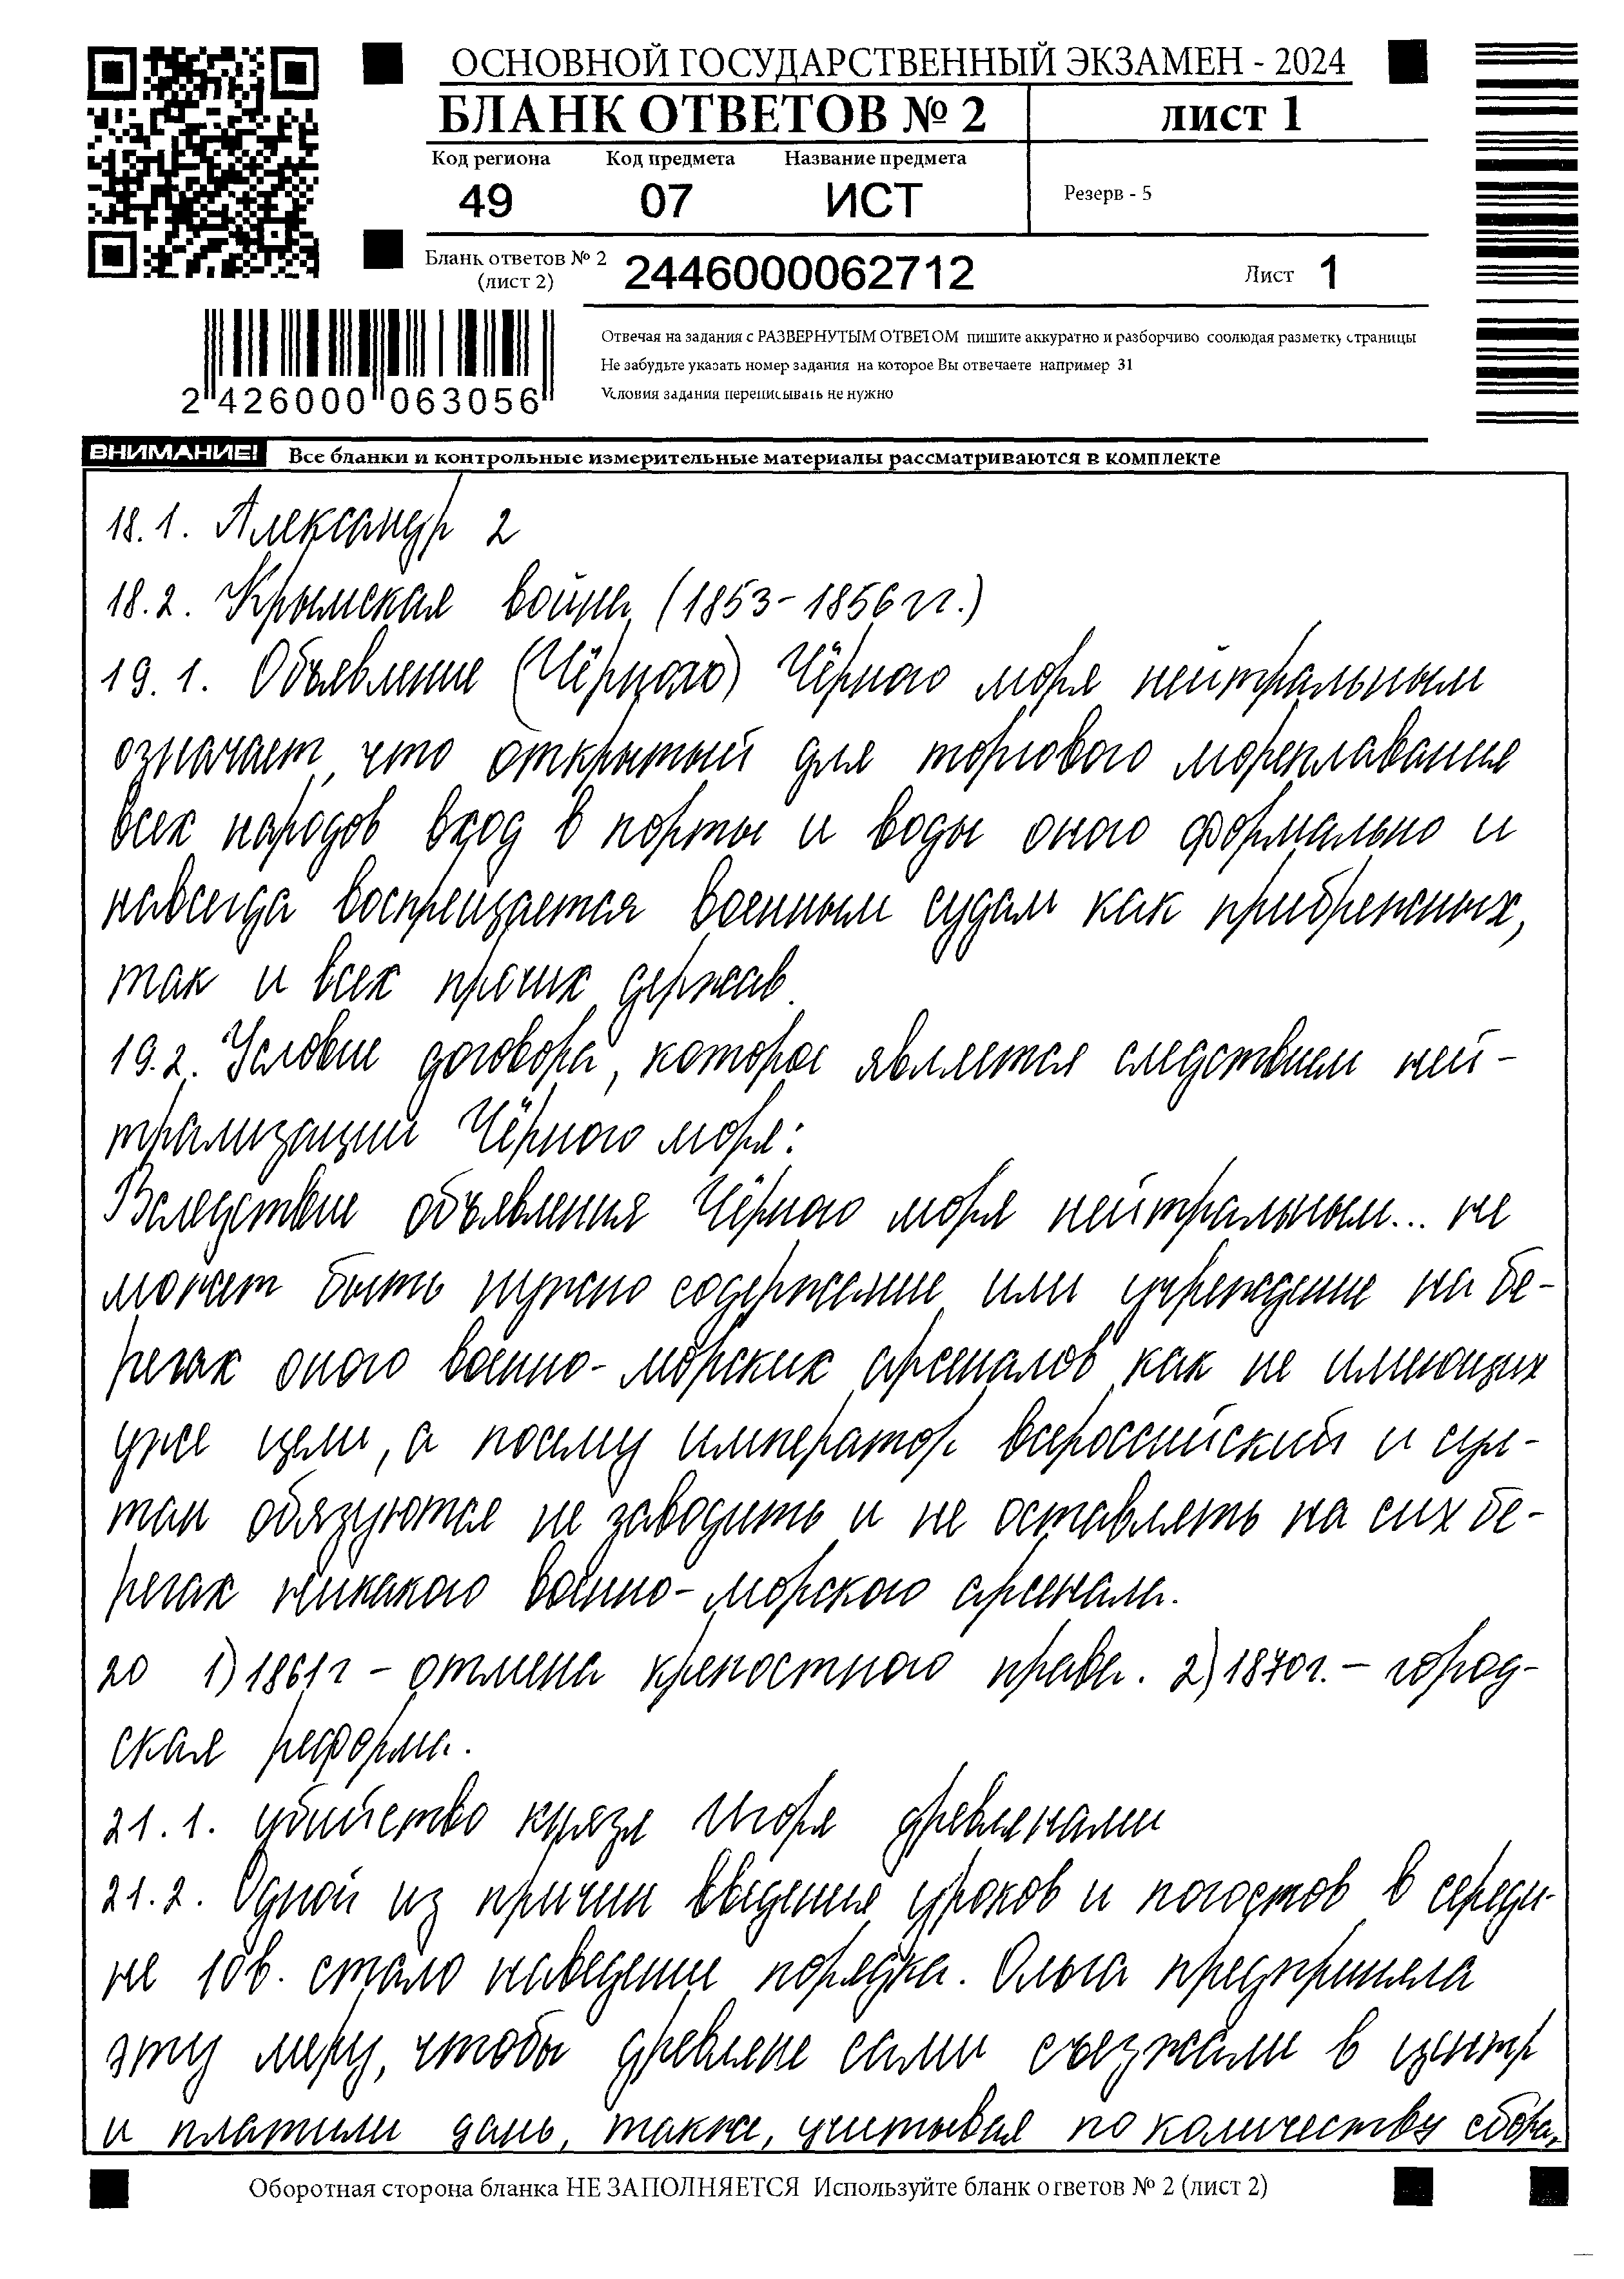 ОСНОВНОЙ ГОСУДАРСТВЕННЫЙ ЭКЗАМЕН - 2024
БЛАНК ОТВЕТОВ № 2
ЛИСТ 1
Код региона Код предмета Название предмета
49 07 ИСТ
Резерв - 5
Бланк ответов № 2
(лист 2)
2446000062712
Лист 1
2 426000 063056
Отвечая на задания с РАЗВЕРНУТЫМ ОТВЕТОМ пишите аккуратно и разборчиво соблюдая разметку страницы
Не забудьте указать номер задания на которое Вы отвечаете например 31
Условия задания переписывать не нужно
ВНИМАНИЕ! Все бланки и контрольные измерительные материалы рассматриваются в комплекте
18.1. Александр 2
18.2. Крымская война (1853-1856 гг.)
19.1. Объявление (Чёрного) Чёрного моря нейтральным
означает, что открытый для торгового мореплавания
всех народов вход в порты и воды оного формально и
навсегда воспрещается военным судам как прибрежных,
так и всех прочих держав.
19.2. Условие договора, которое является следствием ней-
трализации Чёрного моря:
Вследствие объявления Чёрного моря нейтральным... не
может быть нужно содержание или учреждение на бе-
регах оного военно-морских арсеналов, как не имеющих
уже цели, а посему император всероссийский и сул-
тан обязуются не заводить и не оставлять на сих бе-
регах никакого военно-морского арсенала.
20 1) 1861г - отмена крепостного права. 2) 1870г. - город-
ская реформа.
21.1. убийство князя Игоря древлянами
21.2. Одной из причин введения уроков и погостов в середи-
не 10в. стало наведение порядка. Ольга предприняла
эту меру, чтобы древляне сами съезжали в центр
и платили дань, также, учитывая по количеству сбора,
Оборотная сторона бланка НЕ ЗАПОЛНЯЕТСЯ Используйте бланк ответов № 2 (лист 2)